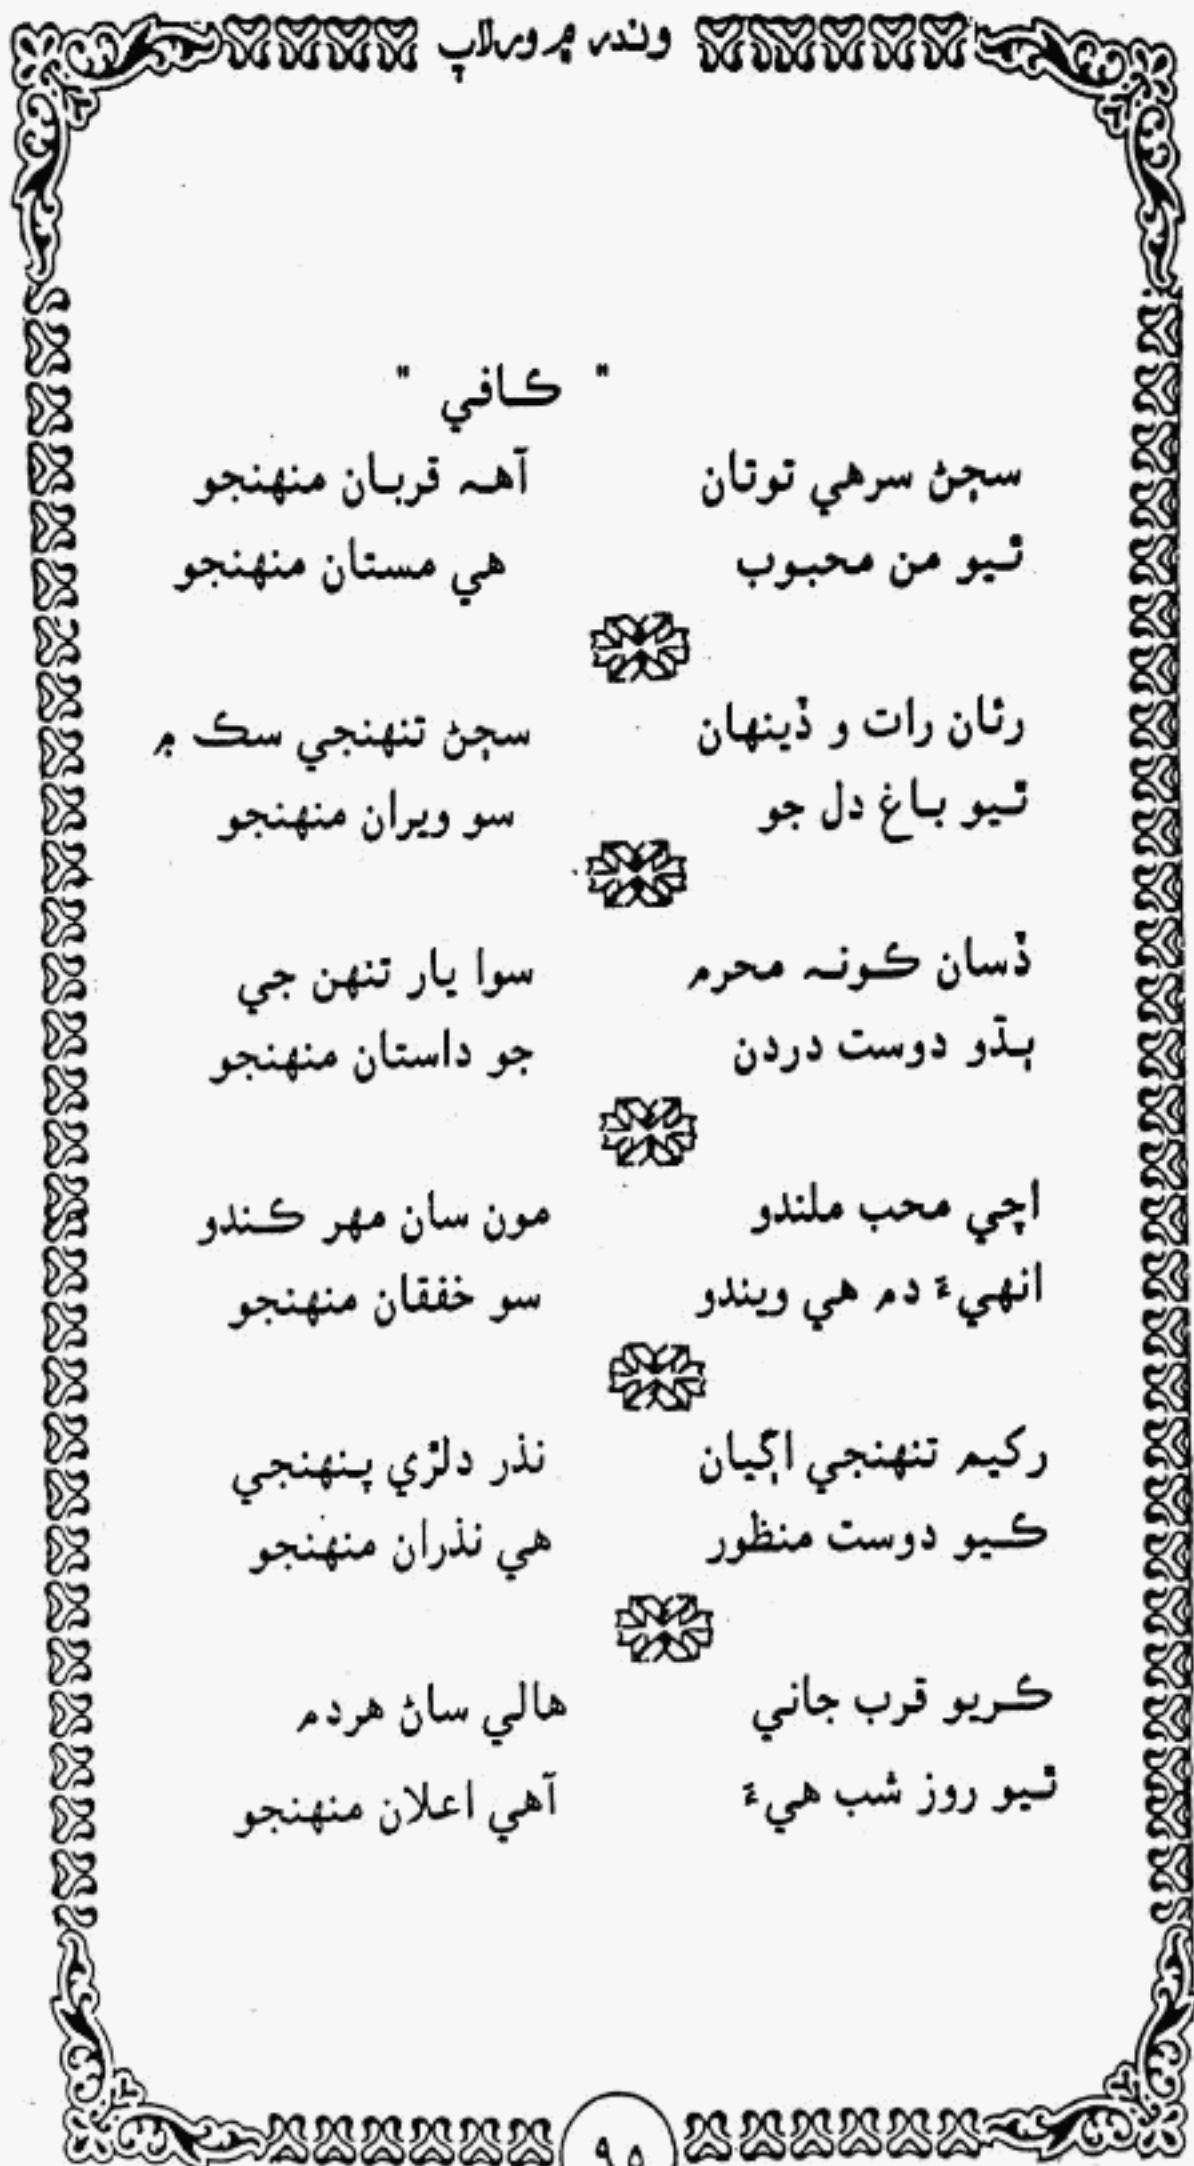 وندر ۾ ورلاپ
" ڪافي "
سڄڻ سرهي توتان آهہ قربان منهنجو
ٿيو من محبوب هي مستان منهنجو
رئان رات و ڏينهان سڄڻ تنهنجي سڪ ۾
ٿيو باغ دل جو سو ويران منهنجو
ڏسان ڪونہ محرم سوا يار تنهن جي
ٻڌو دوست دردن جو داستان منهنجو
اچي محب ملندو مون سان مهر ڪندو
انهيءَ دم هي ويندو سو خفقان منهنجو
رکيم تنهنجي اڳيان نذر دلڙي پنهنجي
ڪيو دوست منظور هي نذران منهنجو
ڪريو قرب جاني هالي ساڻ هردم
ٿيو روز شب هيءَ آهي اعلان منهنجو
٩٥